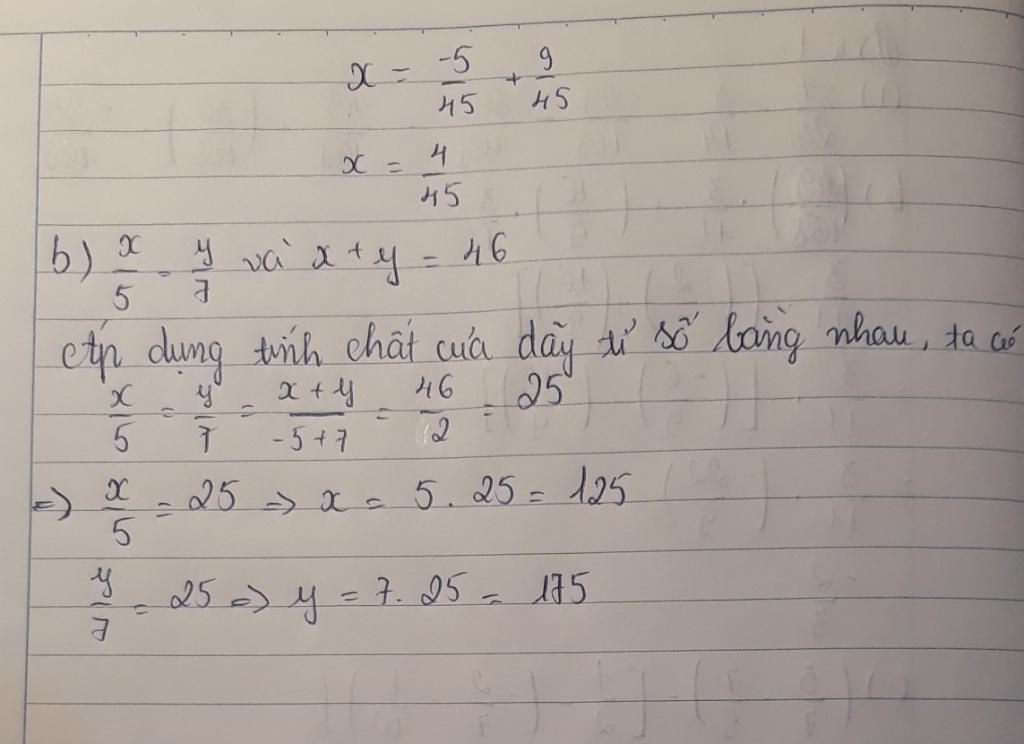 x = -5/45 + 9/45
x = 4/45
b) x/5 = y/7 và x + y = 46
Áp dụng tính chất của dãy tỉ số bằng nhau, ta có
x/5 = y/7 = x + y/-5+7 = 46/2 = 25
=> x/5 = 25 => x = 5. 25 = 125
y/7 = 25 => y = 7. 25 = 175